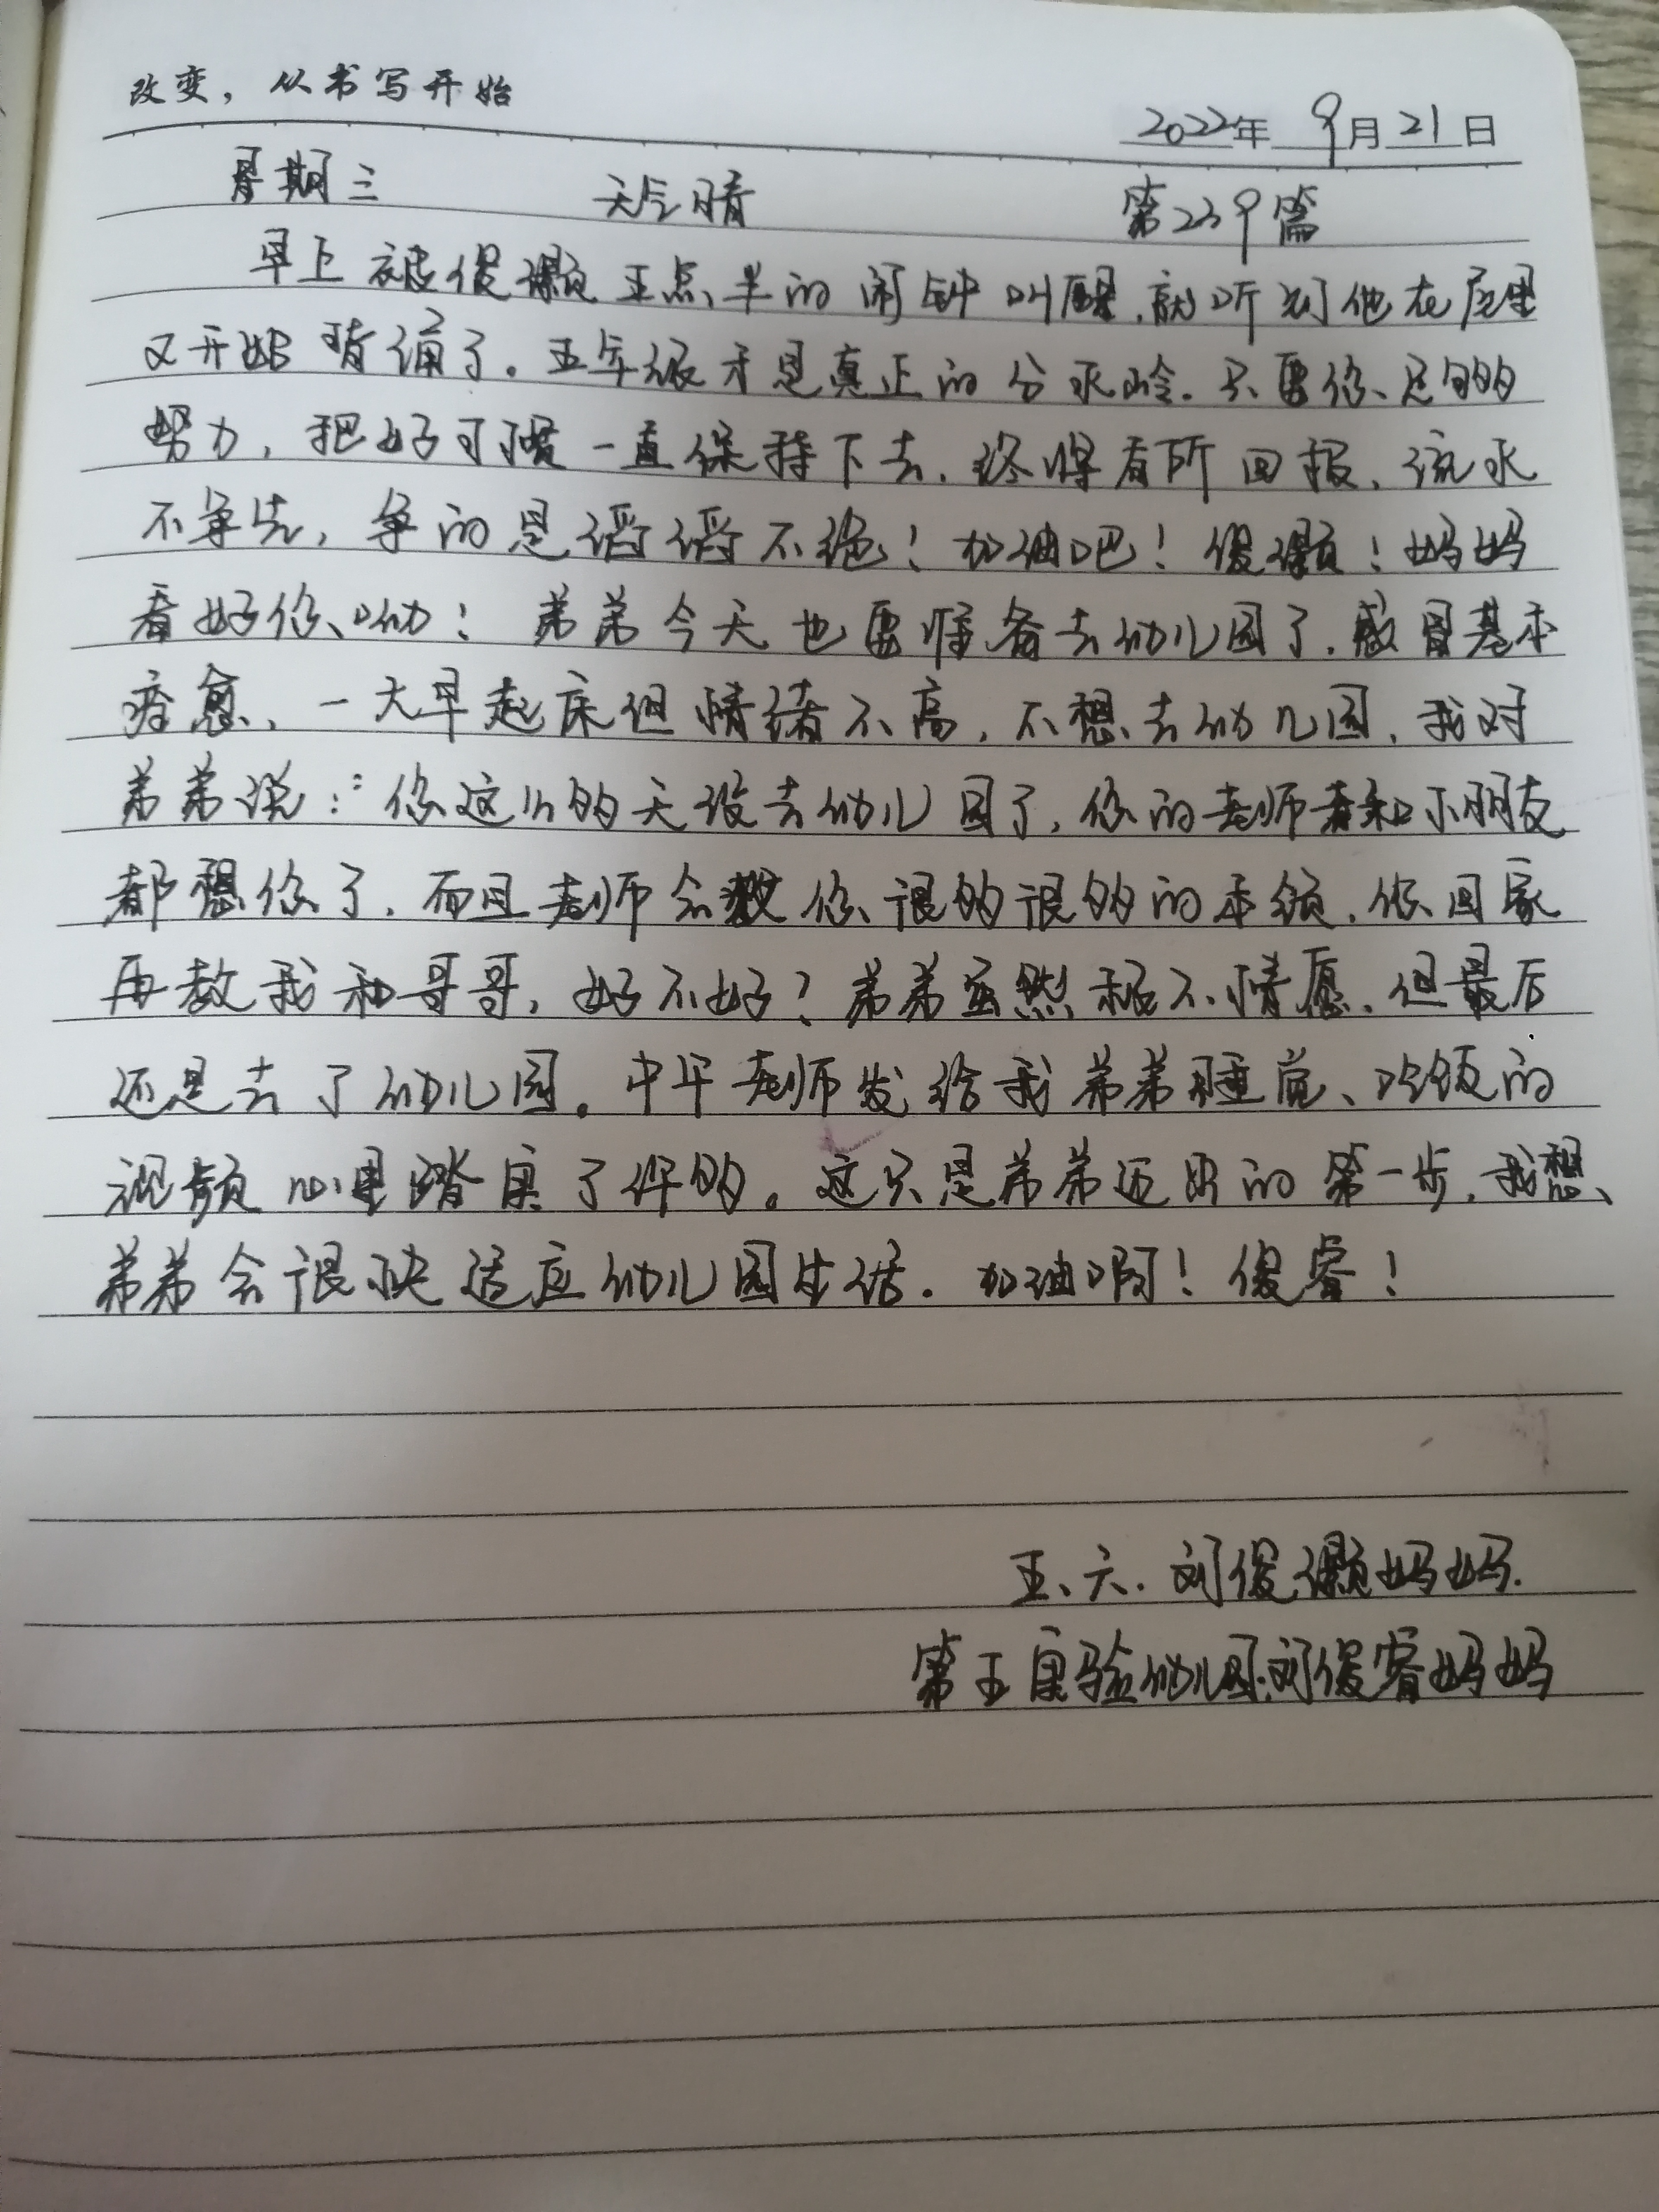 改变，从书写开始
2022年 9月21日
星期三 天气晴 第239篇
早上被俊灏五点半的闹钟叫醒，就听到他在屋里
又开始背诵了。五年级才是真正的分水岭。只要你足够的
努力，把好习惯一直保持下去，终将有所回报，流水
不争先，争的是滔滔不绝！加油吧！俊灏！妈妈
看好你呦！弟弟今天也要准备去幼儿园了，感冒基本
痊愈，一大早起床但情绪不高，不想去幼儿园，我对
弟弟说：“你这么多天没去幼儿园了，你的老师和小朋友
都想你了，而且老师会教你很多很多的本领，你回家
再教我和哥哥，好不好？弟弟虽然极不情愿，但最后
还是去了幼儿园。中午老师发给我弟弟睡觉、吃饭的
视频心里踏实了许多。这只是弟弟迈出的第一步，我想
弟弟会很快适应幼儿园生活。加油啊！俊睿！
五、六．刘俊灏妈妈．
第五实验幼儿园：刘俊睿妈妈